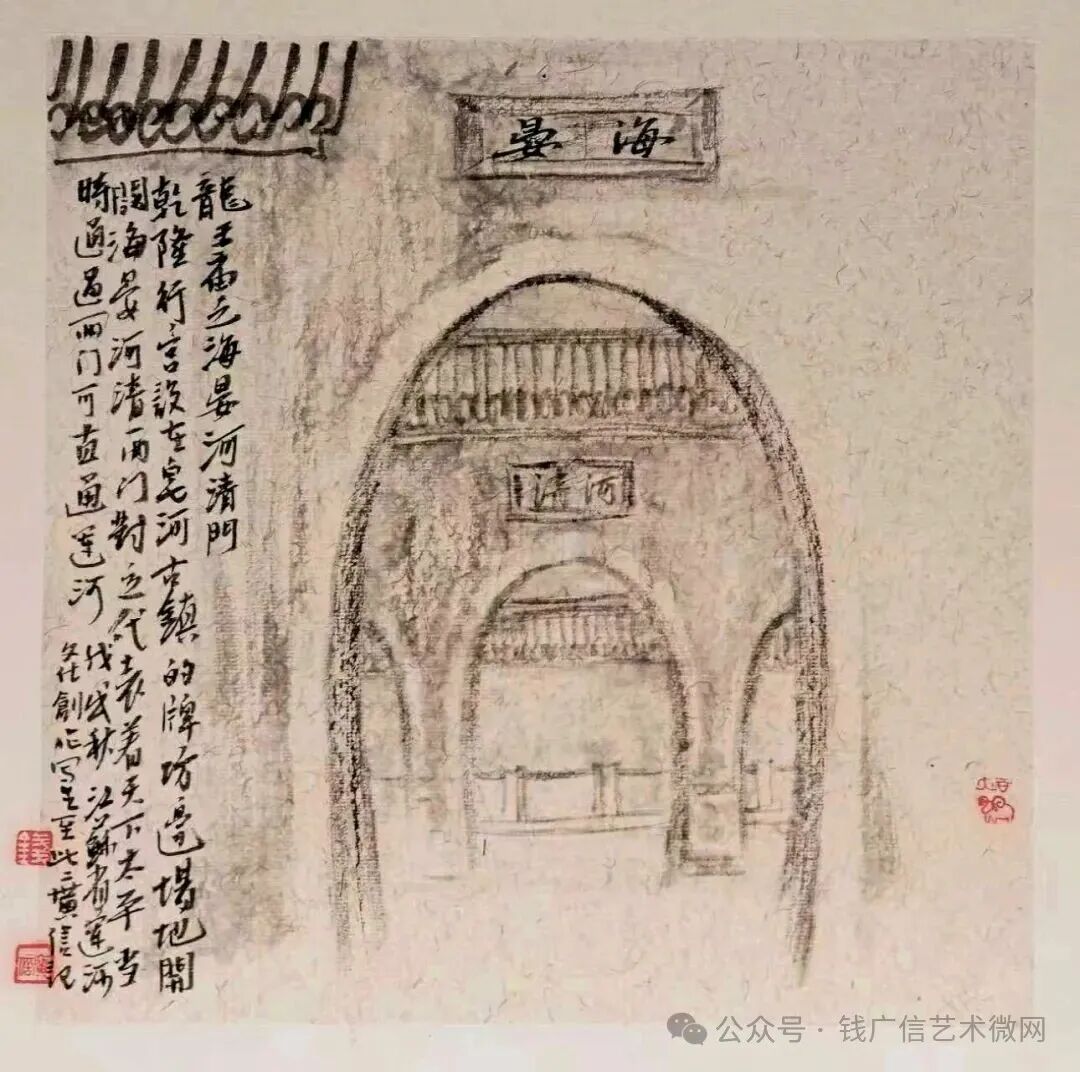 海晏
河清
龍王庙之海晏河清門
乾隆行宫設在皂河古鎮的牌坊邊場地開
闊海晏河清两门對立代表着天下太平当
時通過两门可直通運河
戊戌秋江蘇省運河
文化創作写生至此廣信记
公众号·钱广信艺术微网